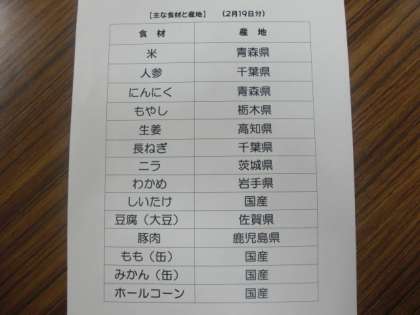 【主な食材と産地】　（2月19日分）
食材　産地
米　青森県
人参　千葉県
にんにく　青森県
もやし　栃木県
生姜　高知県
長ねぎ　千葉県
ニラ　茨城県
わかめ　岩手県
しいたけ　国産
豆腐（大豆）　佐賀県
豚肉　鹿児島県
もも（缶）　国産
みかん（缶）　国産
ホールコーン　国産